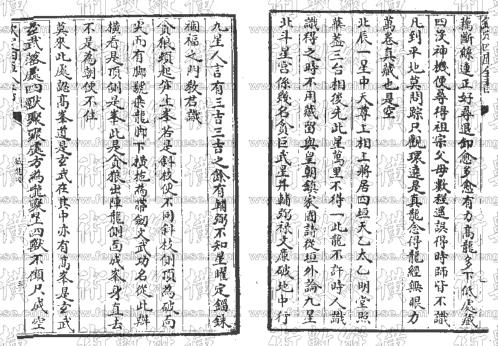 藕斷絲連正好尋退卸愈多愈有力高龍多下低處藏
四沒神機便尋得祖宗父母數程遙誤得時師皆不識
凡到平地莫問踪只觀環遶是真龍念得龍經無眼力
萬卷真藏也是空
北辰一星中天尊上相上將居四垣天乙太乙明堂照
華蓋三台相後先此星萬里不得一此龍不許時人識
識得之時不用藏留與皇朝鎮家國請從垣外論九星
北斗星宮係幾名貪巨武星并輔弼祿文廉破地中行
九星人言有三吉三吉之餘有輔弼不知星曜定錙銖
禍福之門教君識
貪狼頓起笋生峯若是斜枝便不同斜枝側頂為破面
尖而有脚號乘龍脚下橫拖為帶劍文武功名從此辨
橫看是頂側是峯此是貪狼出陣龍側面成峯身直去
不是為朝便不住
莫來此處認高峯道是玄武在其中亦有高峯是玄武
玄武落處四獸聚聚處方為龍聚星四獸不顧只成空